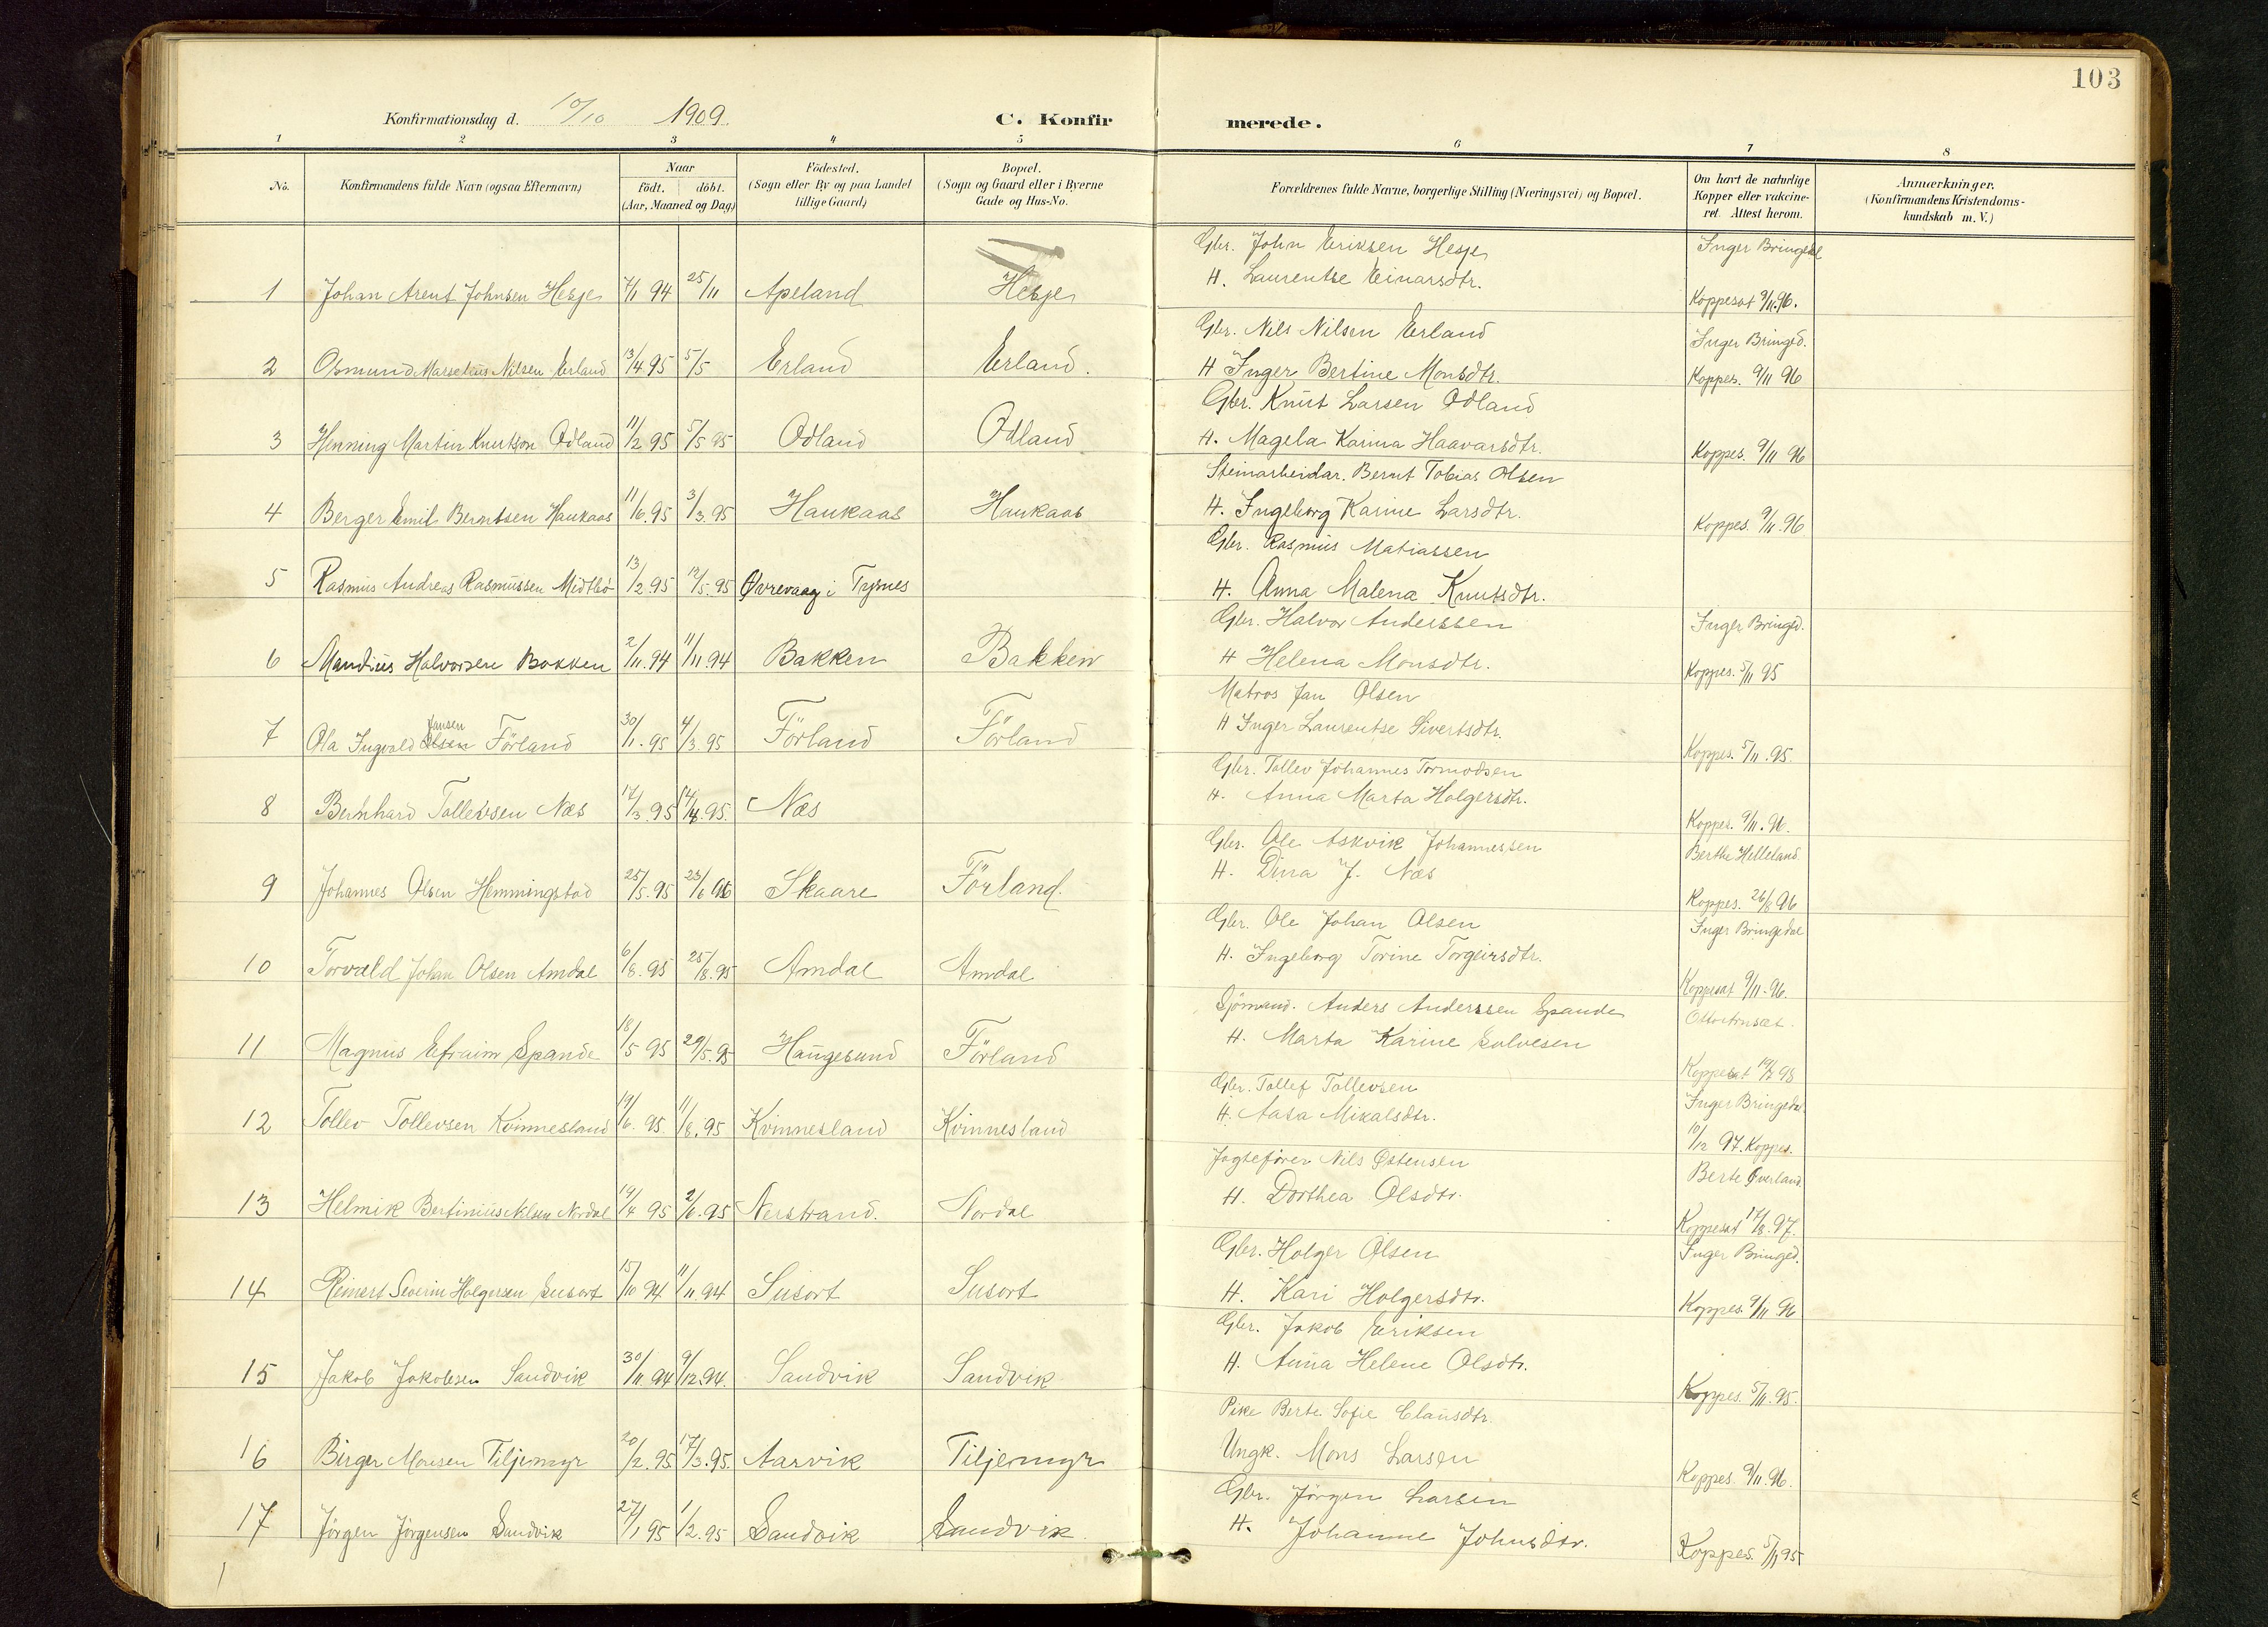 103
Konfirmationsdag d. 10/10 1909.
C. Konfirmerede.
1 2 3 4 5 6 7 8
No.
Konfirmandens fulde Navn (ogsaa Efternavn)
Naar
födt. döbt.
(Aar, Maaned og Dag)
Födested.
(Sogn eller By og paa Landet
tillige Gaard)
Bopæl.
(Sogn og Gaard eller i Byerne
Gade og Hus-No.
Forældrenes fulde Navne, borgerlige Stilling (Næringsvei) og Bopæl.
Om havt de naturlige
Kopper eller vakcine-
ret. Attest herom.
Anmærkninger.
(Konfirmandens Kristendoms-
kundskab m. V.)
Gbr. John Eriksen Hesje Inger Bringedal
H. Laurentse Einarsdtr.
1 Johan Arent Johnsen Hesje 7/11 94 25/11 Apeland Hesje Koppesat 9/11.96.
Gbr. Nils Nilsen Erland Inger Bringed.
2 Osmund Marselius Nilsen Erland 13/4 95 5/5 Erland Erland. H Inger Bertine Monsdtr. Koppes. 9/11 96
Gbr. Knut Larsen Odland
3 Henning Martin Knutson Odland 11/2 95 5/5 95 Odland Odland H. Magela Karina Haavarsdtr. Koppes. 9/11 96
Steinarbeidar. Bernt Tobias Olsen
4 Berger Emil Berntsen Haukaas 11/6.95 3/3.95 Haukaas Haukaas H. Ingeborg Karine Larsdtr. Koppes. 9/11.96
Gbr. Rasmus Matiassen
5 Rasmus Andreas Rasmussen Midtbö 13/2.95 12/5.95 Øvrevaag i Tysnes H. Anna Malena Knutsdtr.
Gbr. Halvor Anderssen Inger Bringed.
6 Mandius Halvorsen Bakken 2/11.94 11/11.94 Bakken Bakken H Helena Monsdtr. Koppes. 5/11 95
Matros Jan Olsen
7 Ola Ingvald Olsen Jansen Förland 30/1.95 4/3.95 Förland Förland H Inger Laurentse Sivertsdtr. Koppes. 5/11.95.
Gbr. Tollev Johannes Tormodsen
8 Bernhard Tollevsen Næs 17/3.95 14/4.95. Næs H. Anna Marta Holgersdtr. Koppes. 9/11.96.
Gbr. Ole Askvik Johannessen Berthe Helleland.
9 Johannes Olsen Hemmingstad 25/5.95 23/6 96 Skaare Förland. H. Dina J. Næs Koppes. 26/8 96
Gbr. Ole Johan Olsen Inger Bringedal
10 Torvald Johan Olsen Amdal 6/8.95 25/8.95 Amdal Amdal H. Ingeborg Torine Torgeirsdtr. Koppesat 9/11-96.
Sjömand. Anders Anderssen Spande
11 Magnus Efraim Spande 18/5 95 29/5.95 Haugesund Förland H. Marta Karine Solvesen Koppesat
Gbr. Tollef Tollevsen Inger Bringedal
12 Tollev Tollevsen Kvinnesland 19/6.95. 11/8.95 Kvinnesland Kvinnesland H. Aasa Mikalsdtr. 10/12 97. Koppes.
Jagtefører Nils Østensen Berte Øverland.
13 Helmik Bertinius Nilsen Nordal 19/4 95 2/6.95 Nerstrand. Nordal H. Dorthea Olsdtr. Koppesat 17/8.97.
Gbr. Holger Olsen Inger Bringed.
14 Reinert Severin Holgersen Susort 15/10 94 11/11.94 Susort Susort H. Kari Holgersdtr. Koppes. 9/11.96
Gbr. Jakob Eriksen
15 Jakob Jakobsen Sandvik 30/11.94 9/12.94. Sandvik Sandvik H. Anna Helene Olsdtr. Koppes. 5/11.95.
Pike Berte Sofie Clausdtr.
16 Birger Monsen Tiljemyr 20/2.95 17/3.95. Aarvik Tiljemyr Ungk. Mons Larsen Koppes. 9/11.96.
Gbr. Jörgen Larsen
17 Jörgen Jörgensen Sandvik 27/1 95 1/2.95 Sandvik Sandvik. H. Johanne Johnsdtr. Koppes. 5/11 95